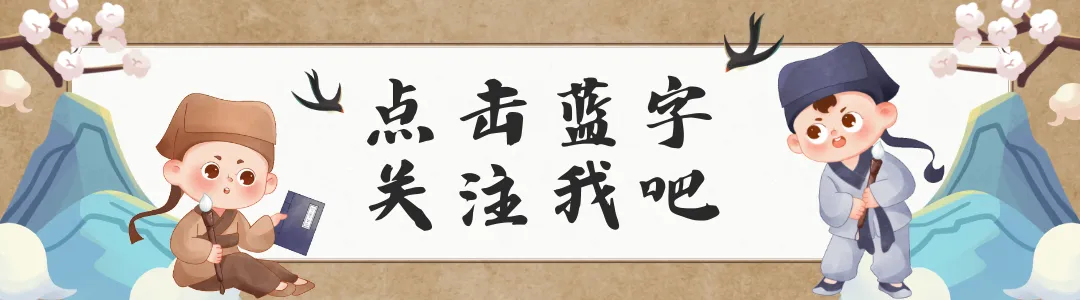 点击蓝字
关注我吧